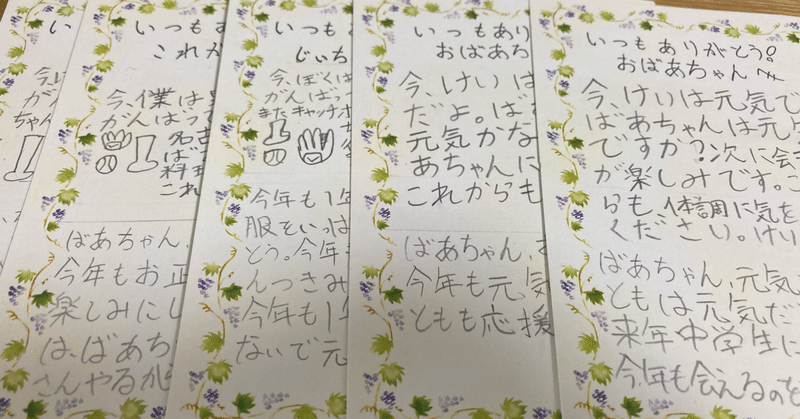 い
今
がん
ちゃん
いつも
これか
今、僕は
がんばって
名古
ば
料理
これ
ばあちゃん、
今年もお正
楽しみにし
は、ばあち
さんやるか
いつも
じいち
今、ぼくは
がんばっ
またキャッチオ
今年も1年
服をいっぱ
とう。今年
んつきみ
今年も1年
ないで元
いつもあり
おばあち
今、けいは
だよ。ば
元気かな
あちゃんに
これからも
ばあちゃん、
今年も元気
ともも応援
いつもありがとう!
おばあちゃん
今、けいは元気で
ばあちゃんは元気
ですか?次に会
が楽しみです。こ
らも、体調に気を
ください。けい
ばあちゃん、元気
ともは元気だ
来年中学生に
今年も会えるのを